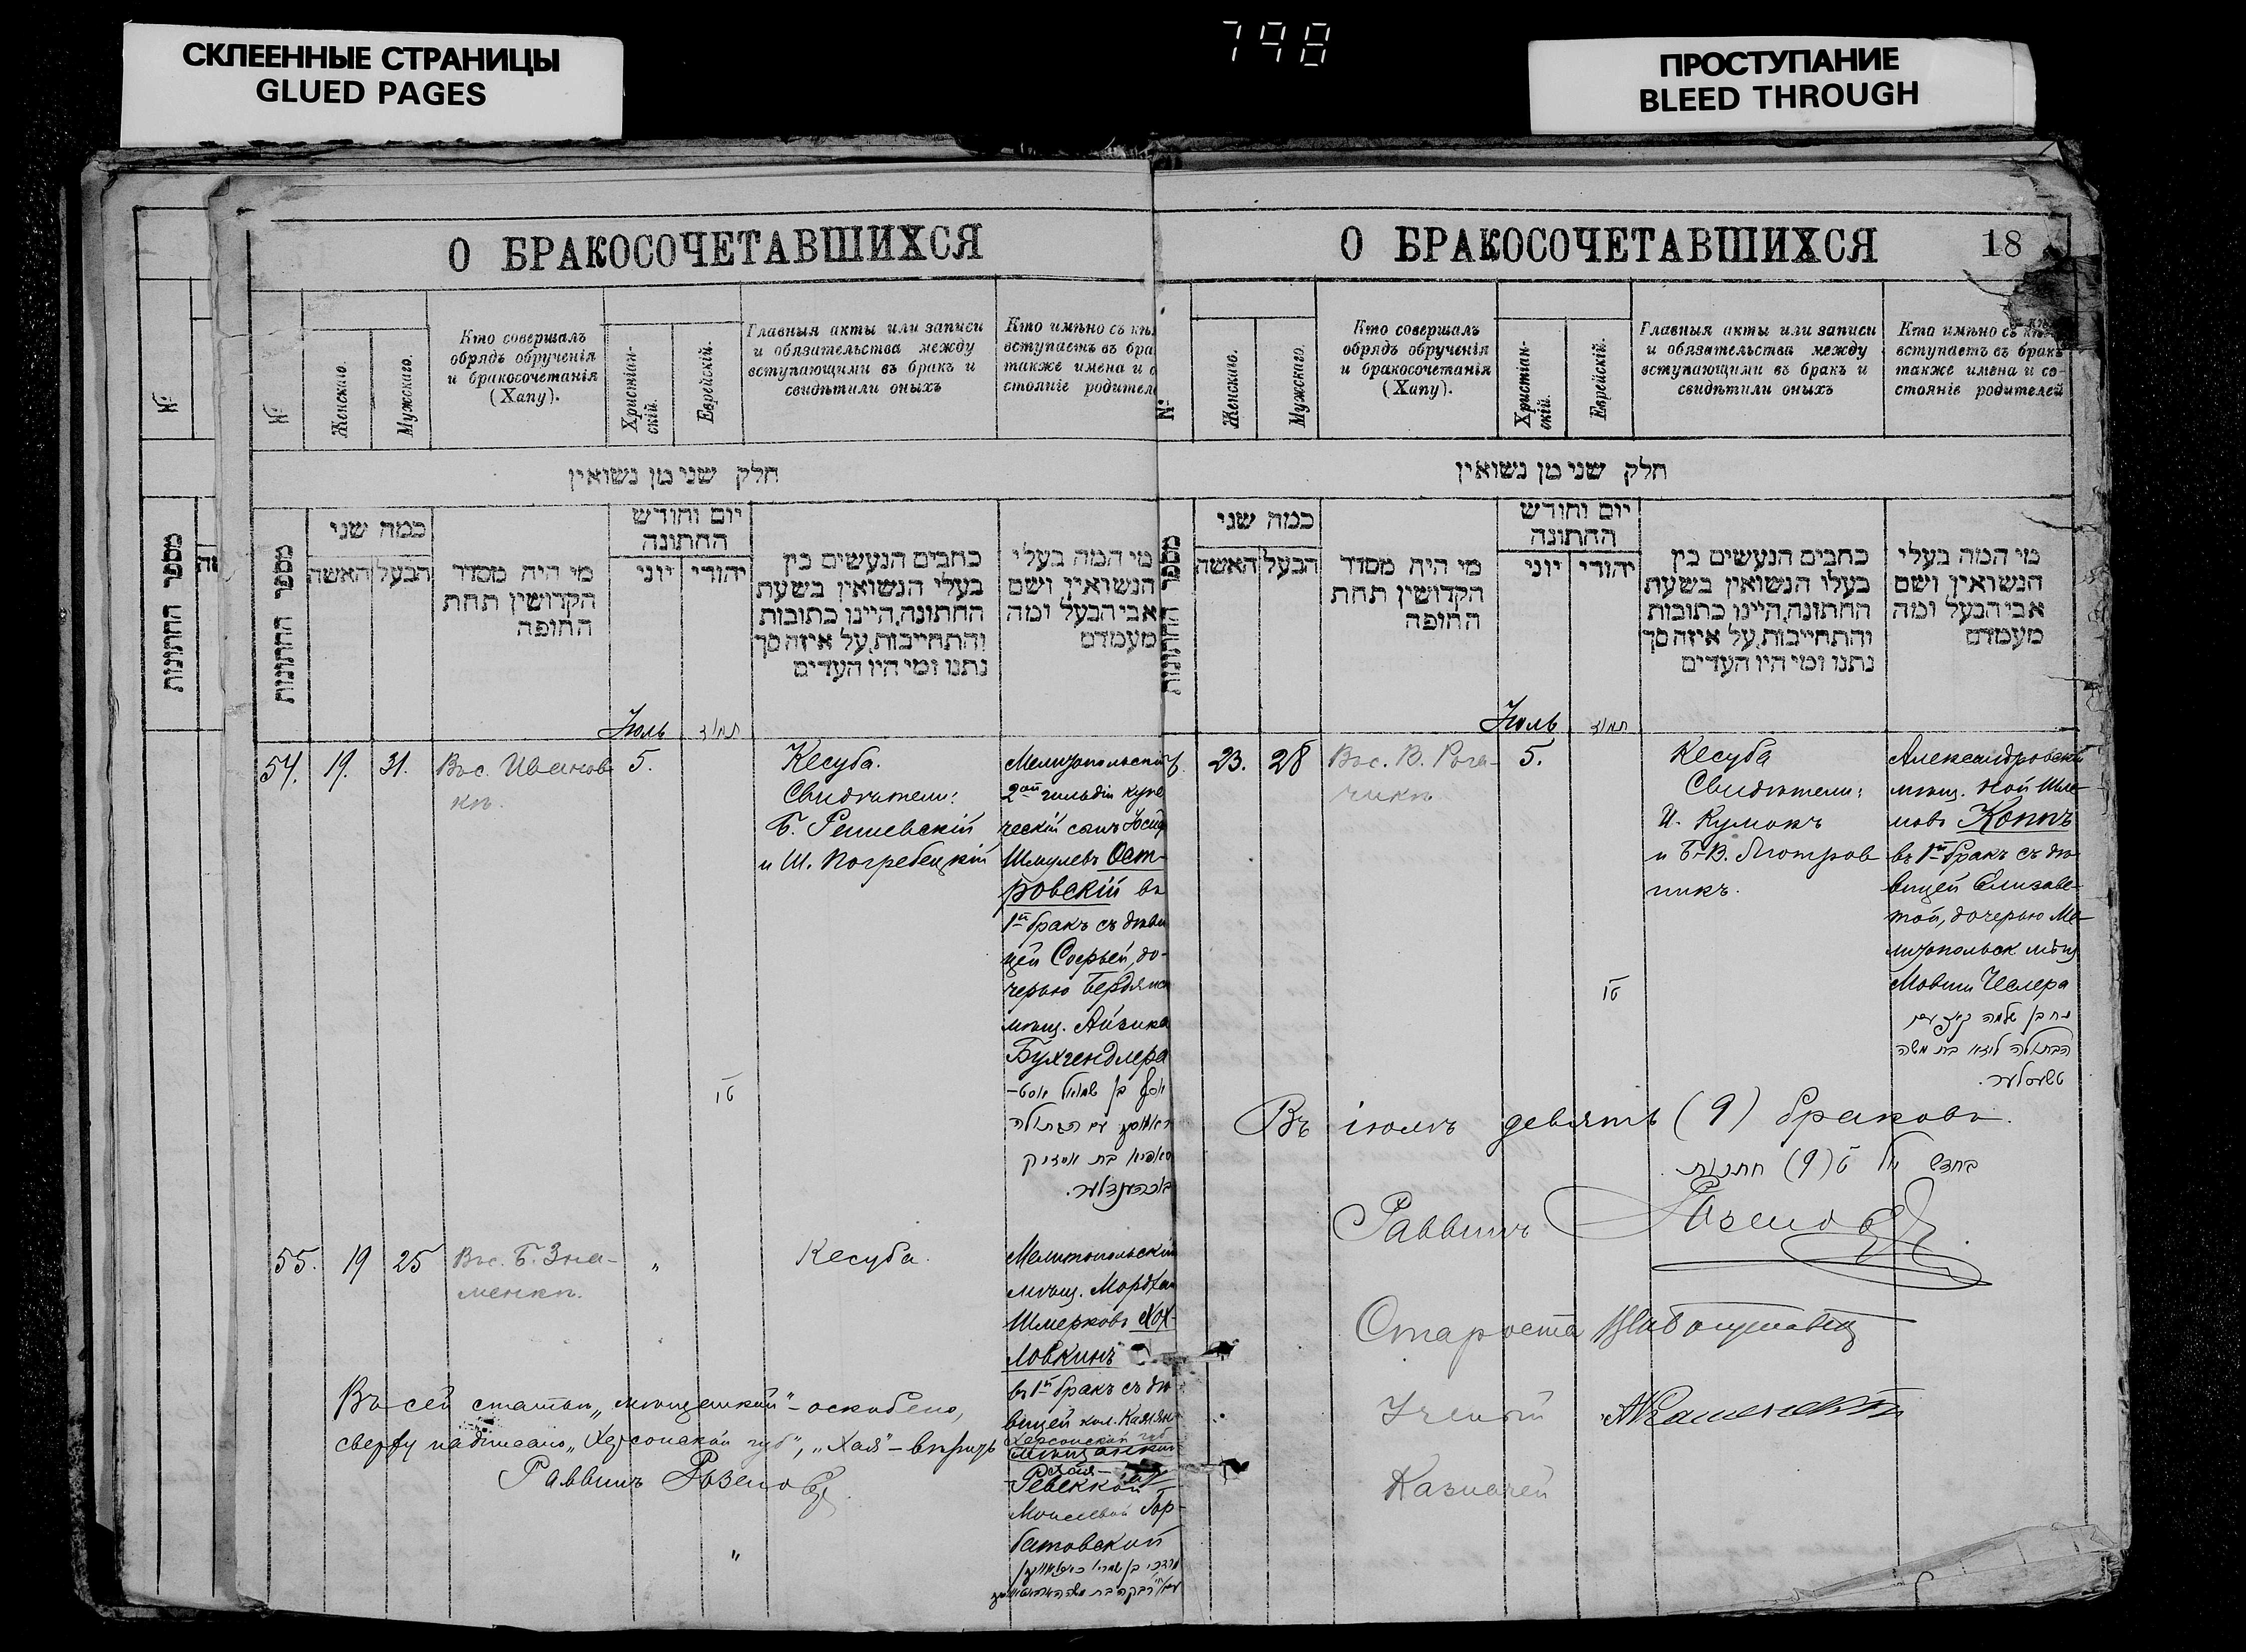 СКЛЕЕННЫЕ СТРАНИЦЫ
GLUED PAGES
798
ПРОСТУПАНИЕ
BLEED THROUGH
О БРАКОСОЧЕТАВШИХСЯ
№
Женскаго.
Мужскаго.
Кто совершалъ
обрядъ обрученія
и бракосочетанія
(Хапу).
Христіан-
скій.
Еврейскій.
Главныя акты или записи
и обязательства между
вступающими въ бракъ и
свидѣтили оныхъ
Кто имѣно съ кѣ
вступаетъ въ бра
также имена и с
стояніе родител
חלק שני מן נשואין
מספר החתונות
מספר החתונות
כמה שני
האשה
הבעל
מי היה מסדר
הקדושין תחת
החופה
יום וחודש
החתונה
יוני
יהודי
כתבים הנעשים בין
בעלי הנשואין בשעת
החתונה, היינו כתובות
והתחייבות, על איזה סך
נתנו ומי היו העדים
מי המה בעלי
הנשואין ושם
אבי הבעל ומה
מעמדם
Іюль
תמוז
54. 19. 31.
Вос. Иванов-
кѣ.
5.
Кесуба.
Свидѣтели:
Б. Решевскій
и Ш. Погребецкій
Мелитопольскій
2ой гильдіи купе
ческій сынъ Іосиф
Шмулевъ Ост-
ровскій въ
1й бракъ съ дѣви
цей Софьей, до-
черью Бердянск
мѣщ. Айзика
Бухгендлера
טו
יוסף בן שמואל אסט-
עם הבתולה
סאפיא בת אייזיק
בוכהענדלער.
55. 19 25
Вос. Б. Зна-
менкѣ.
"
Кесуба.
Мелитопольскій
мѣщ. Мордхай
Шмерковъ Хох-
ловкинъ
въ 1й бракъ съ дѣ
вицей кол.
Херсонской губ
Ревеккой
Моисеевой Гор-
батовской
"
Въ сей статьѣ „мѣщанкой" – оскоблено,
сверху надписано „Херсонской губ", „Хая" – вѣрить
Раввинъ Розено
О БРАКОСОЧЕТАВШИХСЯ
18
№
Женскаго.
Мужскаго.
Кто совершалъ
обрядъ обрученія
и бракосочетанія
(Хапу).
Христіан-
скій.
Еврейскій.
Главныя акты или записи
и обязательства между
вступающими въ бракъ и
свидѣтили оныхъ
Кто имѣно съ кѣ
вступаетъ въ бракъ
также имена и со-
стояніе родителей
חלק שני מן נשואין
מספר החתונות
כמה שני
האשה
הבעל
מי היה מסדר
הקדושין תחת
החופה
יום וחודש
החתונה
יוני
יהודי
כתבים הנעשים בין
בעלי הנשואין בשעת
החתונה, היינו כתובות
והתחייבות, על איזה סך
נתנו ומי היו העדים
מי המה בעלי
הנשואין ושם
אבי הבעל ומה
מעמדם
Іюль
תמוז
23. 28
Вос. В. Рога-
чикѣ
5.
Кесуба
Свидѣтели:
И. Кумокъ
и Б-В.
никъ.
Александровскій
мѣщ. Ной Шле-
мовъ Коппъ
въ 1й бракъ съ дѣ-
вицей Елизаве-
той, дочерью Ме-
литопольск мѣщ
Мовши Чеслера
טו
נח בן שלמה עם
הבתולה ליזא בת משה
טשעסלער.
Въ іюлѣ девять (9) браковъ.
בחדש יול ט (9) חתנות
Раввинъ Розено
Староста
Ученый
Казначей